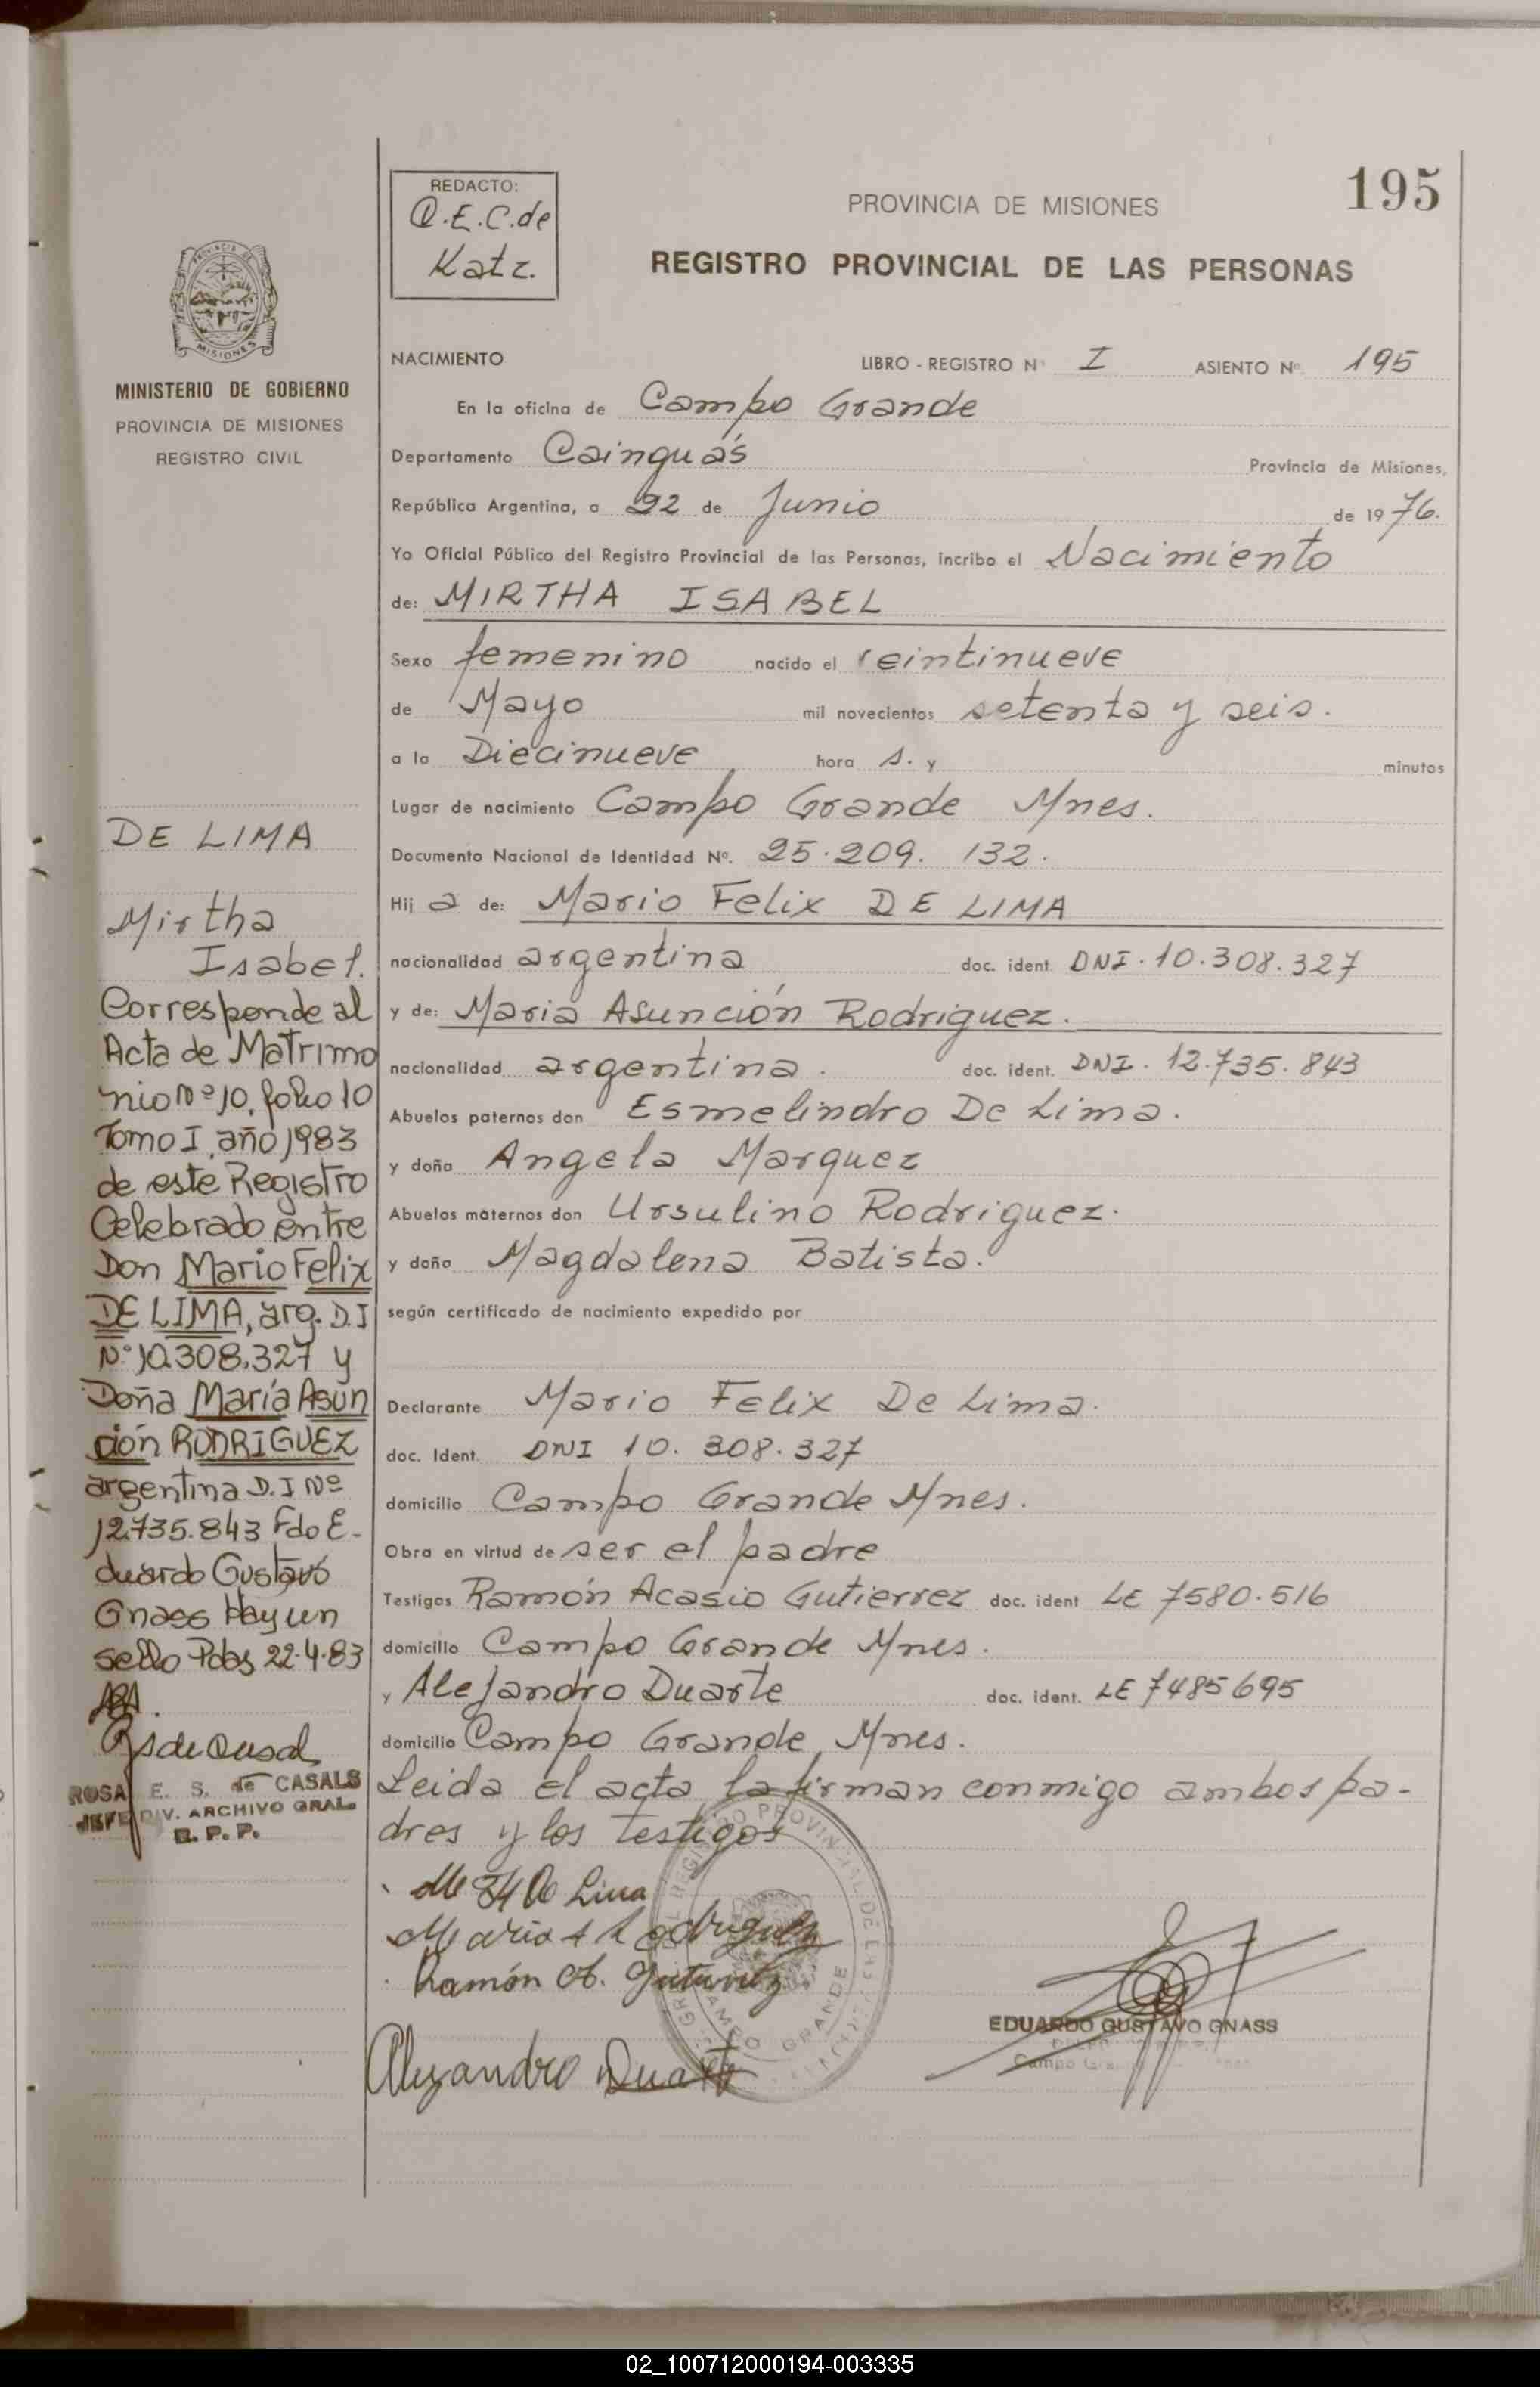 195
REDACTO:
Q.E.C.de
Katz.
PROVINCIA DE MISIONES
REGISTRO PROVINCIAL DE LAS PERSONAS
MISIONES
MINISTERIO DE GOBIERNO
PROVINCIA DE MISIONES
REGISTRO CIVIL
NACIMIENTO LIBRO - REGISTRO Nº I ASIENTO Nº 195
En la oficina de Campo Grande
Departamento Cainguás Provincia de Misiones,
República Argentina, a 22 de Junio de 1976.
Yo Oficial Público del Registro Provincial de las Personas, incribo el Nacimiento
de: MIRTHA ISABEL
Sexo femenino nacido el veintinueve
de Mayo mil novecientos setenta y seis.
a la Diecinueve hora s. y minutos
Lugar de nacimiento Campo Grande Mnes.
Documento Nacional de Identidad Nº. 25.209.132.
Hij a de: Mario Felix DE LIMA
nacionalidad argentina doc. ident. DNI. 10.308.327
y de: Maria Asunción Rodriguez.
nacionalidad argentina. doc. ident. DNI. 12.735.843
Abuelos paternos don Esmelindro De Lima.
y doña Angela Marquez
Abuelos maternos don Ursulino Rodriguez.
y doña Magdalena Batista.
según certificado de nacimiento expedido por
Declarante Mario Felix De Lima.
doc. Ident. DNI 10.308.327
domicilio Campo Grande Mnes.
Obra en virtud de ser el padre
Testigos Ramón Acasio Gutierrez doc. ident LE 7580.516
domicilio Campo Grande Mnes.
y Alejandro Duarte doc. ident. LE 7485695
domicilio Campo Grande, Mnes.
Leida el acta la firman conmigo ambos pa-
dres y los testigos
De Lima
Maria A Rodriguez
Ramón A. Gutierrez
Alejandro Duarte
CAMPO GRANDE
EDUARDO GUSTAVO GNASS
DE LIMA
Mirtha
Isabel.
Corresponde al
Acta de Matrimo
nio Nº 10, folio 10
Tomo I, año 1983
de este Registro
Celebrado entre
Don Mario Felix
DE LIMA, arg. D.I
Nº 10.308.327 y
Doña María Asun
ción RODRIGUEZ
argentina D.I Nº
12.735.843 Fdo E-
duardo Gustavo
Gnass Hay un
sello Pdas 22.4.83
ROSA E. S. de CASALS
JEFE DIV. ARCHIVO GRAL.
R. P. P.
02_100712000194-003335